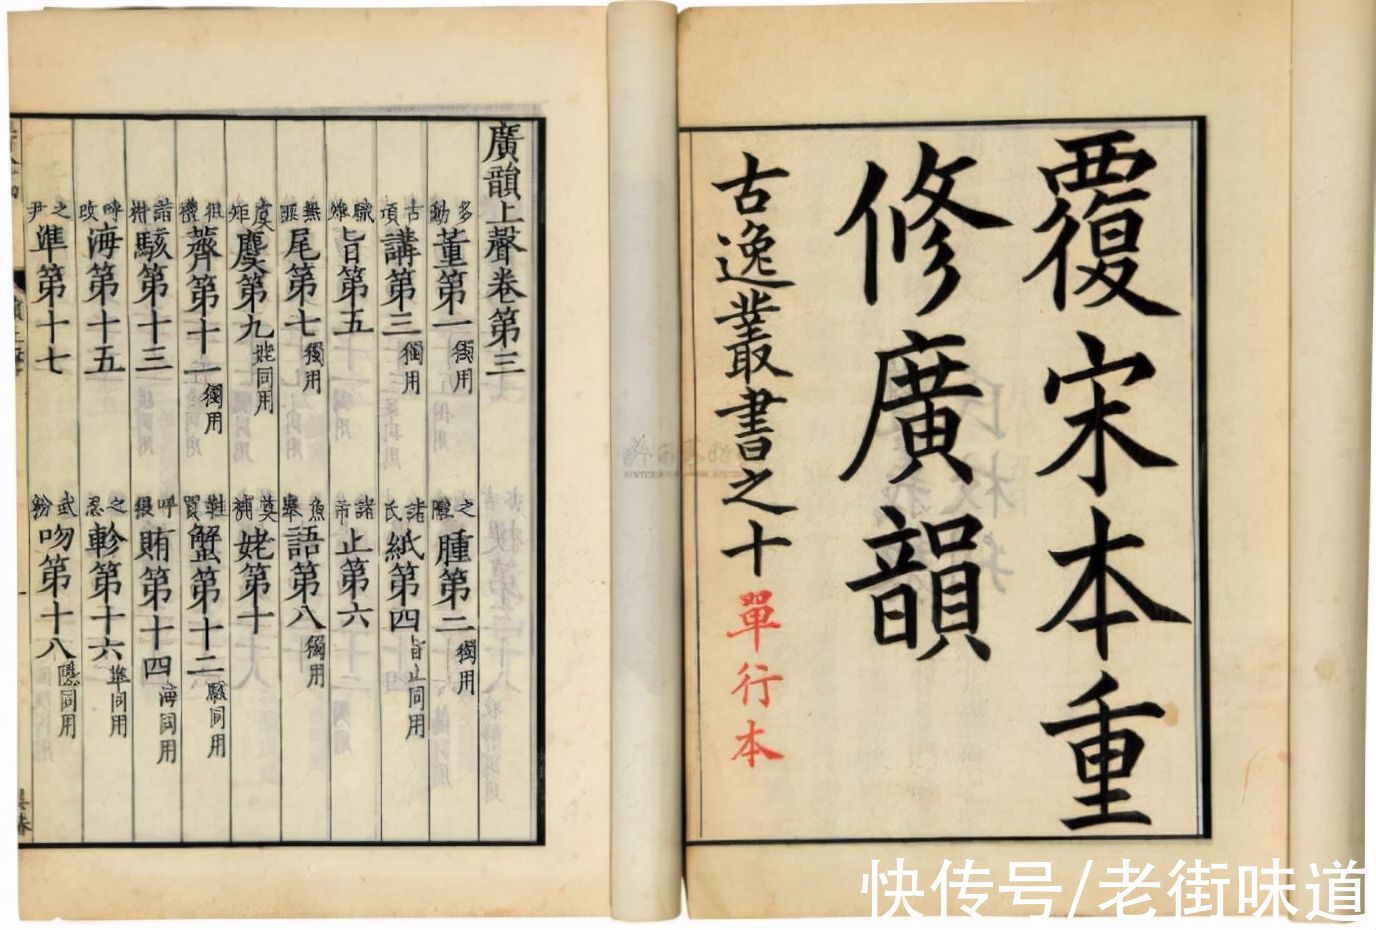 覆宋本重
修廣韻
古逸叢書之十 單行本
廣韻上聲卷第三
多動董第一獨用 之隴腫第二獨用
古項講第三獨用 諸氏紙第四旨止同用
職雉旨第五 諸市止第六
無匪尾第七獨用 魚舉語第八獨用
虞矩麌第九姥同用 莫補姥第十
徂禮薺第十一獨用 鞋買蟹第十二駭同用
諧楷駭第十三 呼猥賄第十四海同用
呼改海第十五 之忍軫第十六準同用
之尹準第十七 武粉吻第十八隱同用
快传号/老街味道